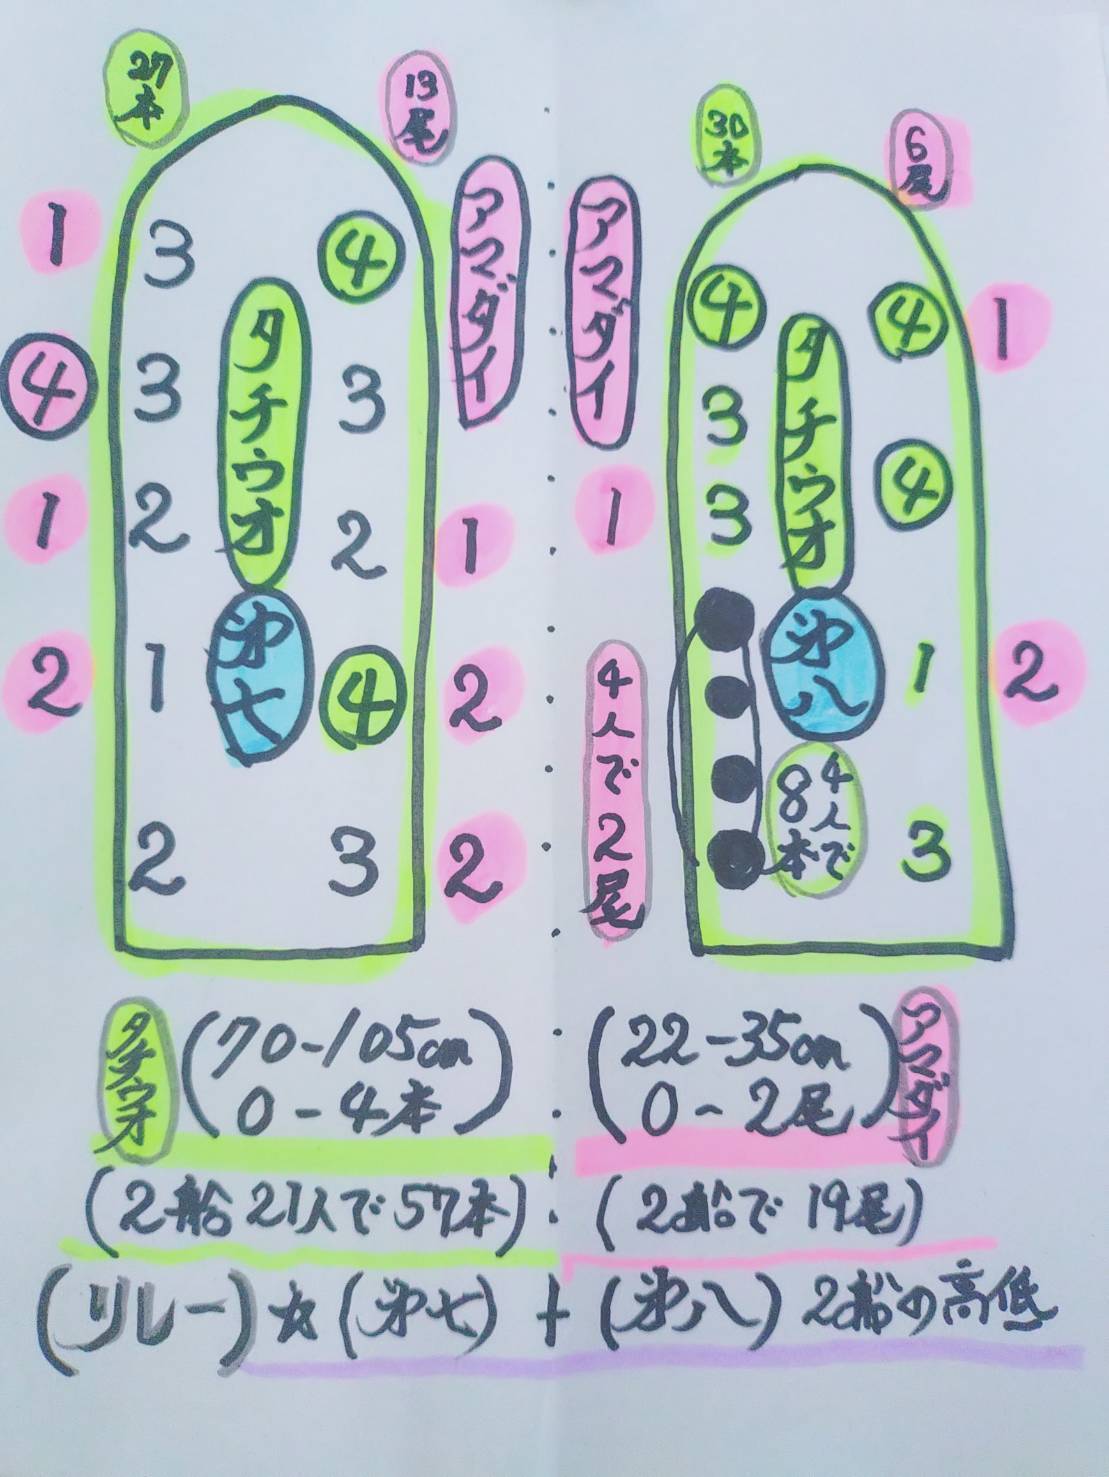 27本
13尾
アマダイ
1
3
④
④
3
タチウオ
3
1
2
2
1
2
1
第七
④
2
2
3
2
30本
6尾
アマダイ
④
④
1
3
タチウオ
④
1
3
第八
1
2
4人で2尾
4人で
8本
3
タチウオ
(70-105cm
0-4本)
(22-35cm
0-2尾)
アマダイ
(2船21人で57本)
(2船で19尾)
(リレー)☆(第七)+(第八)2船の高低